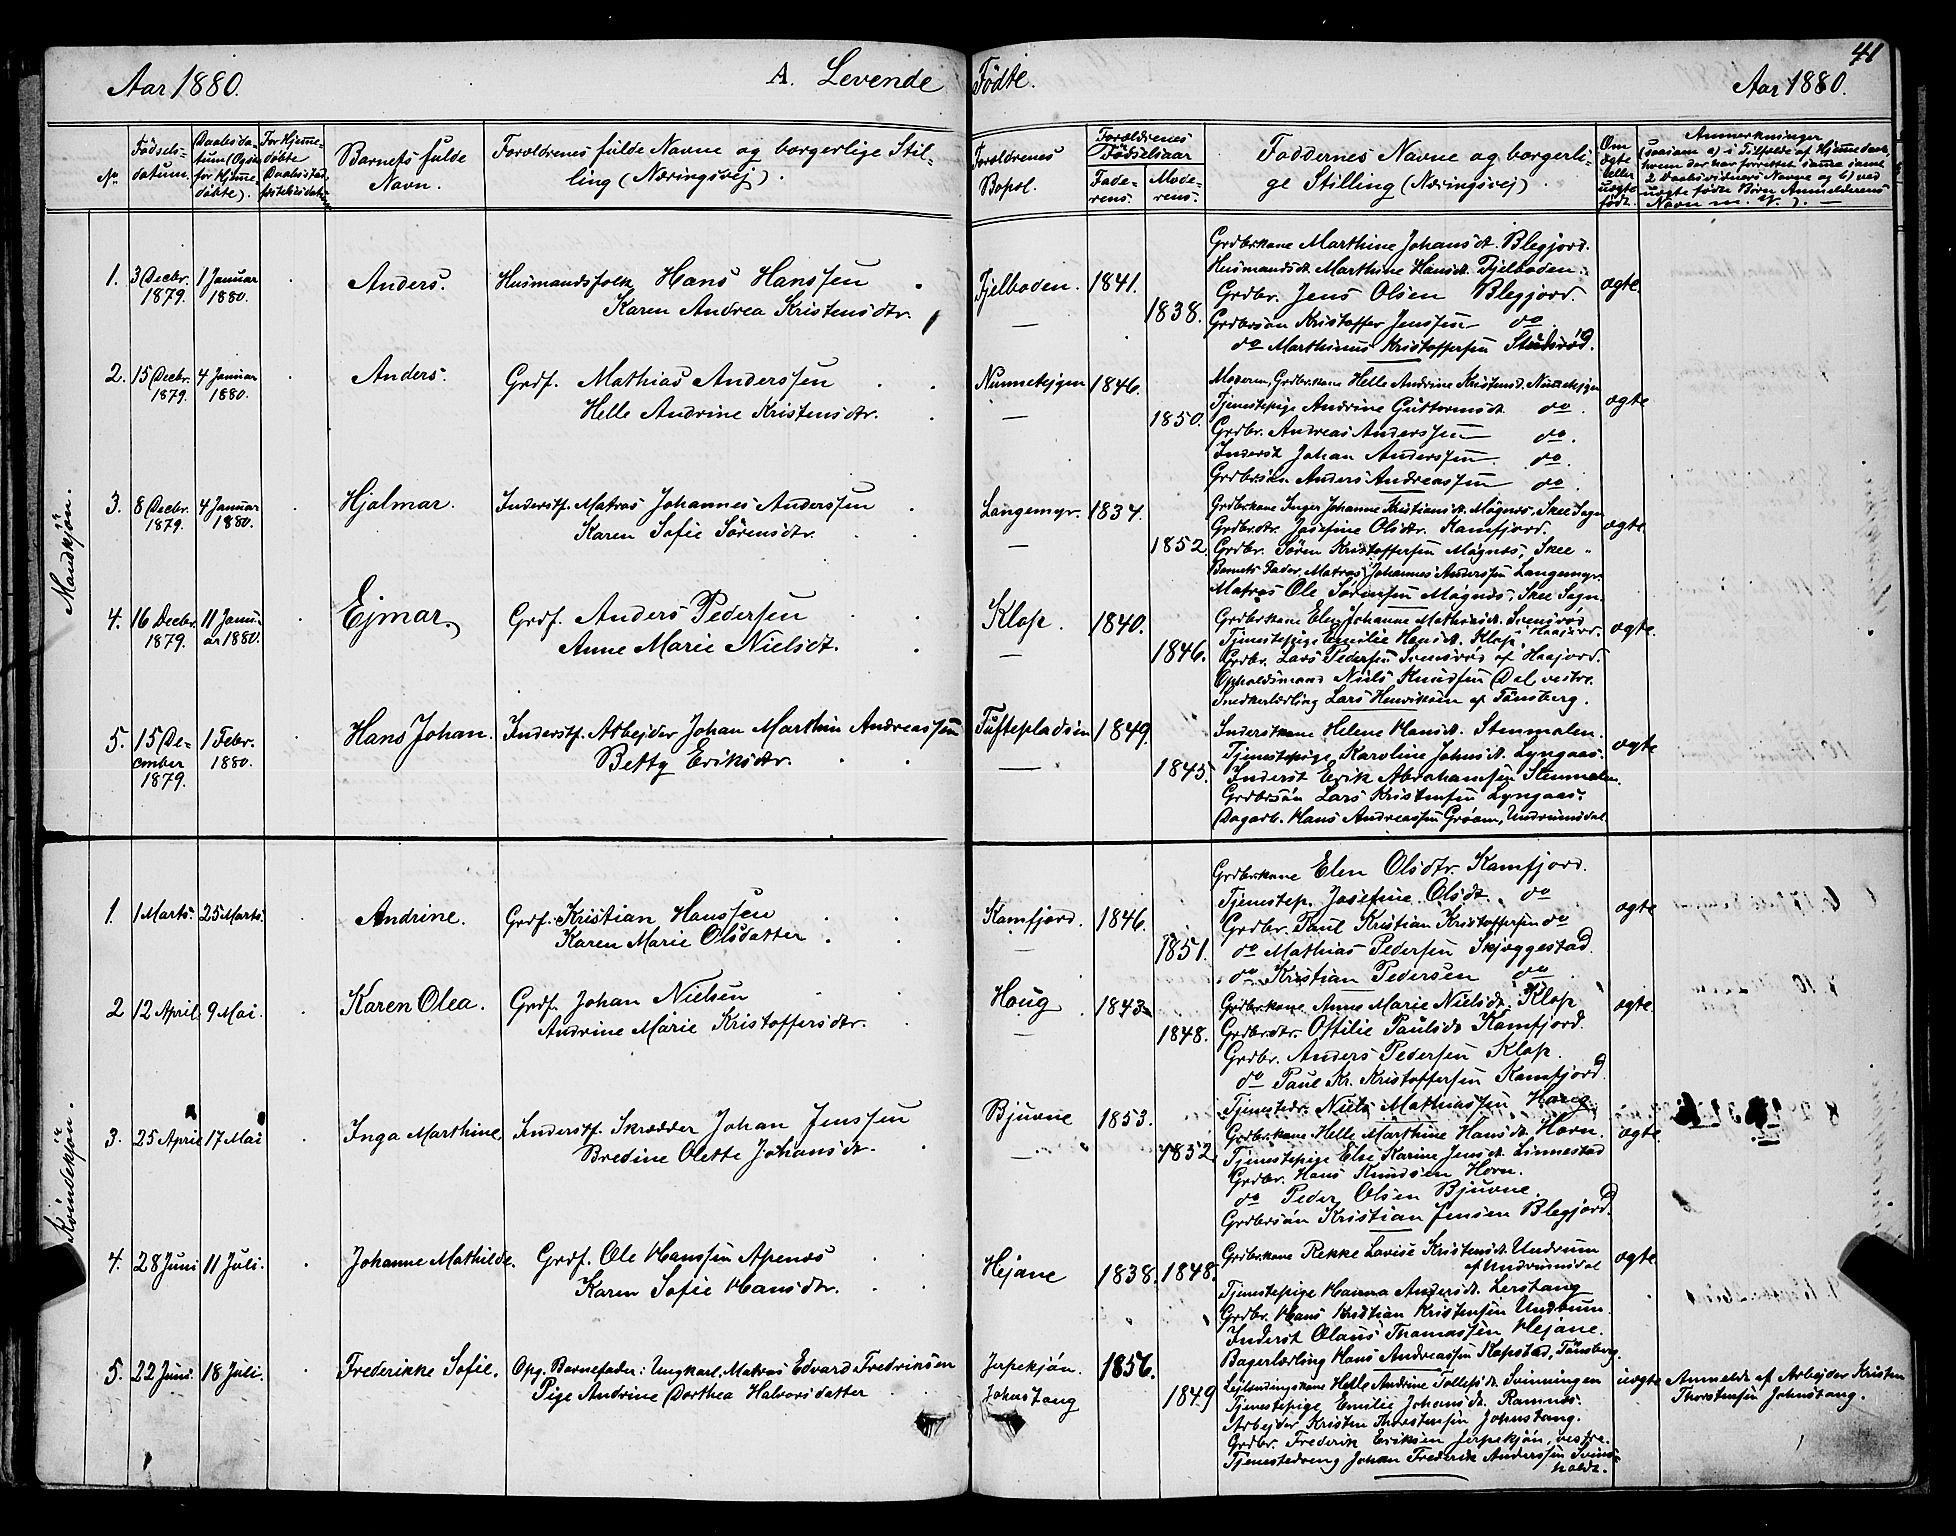 41
Aar 1880. A. Levende Fødte. Aar 1880.
No
Fødsels-
datum.
Daabsda-
tum (Ogsaa
for Hjemme-
døbte).
For Hjemme-
døbte
Barnets fulde
Navn.
Forældrenes fulde Navne og borgerlige Stil-
ling (Næringsvej).
Forældrenes
Bopæl.
Forældrenes
Fødselsaar
Fade-
rens.
Mode-
rens.
Faddernes Navne og borgerli-
ge Stilling (Næringsvej).
Om
ægte
eller
uægte
født.
Anmerkninger
(saasom a) i Tilfælde af Hjemmedaab,
hvem der har forrettet samme samt
2 Daabsvidners Navne og b) ved
uægte fødte Børn Anmelderens
Navn m. v.).
Mandkjøn.
1. 3 Decbr. 1879. 1 Januar 1880. Anders. Husmandsfolk Hans Hanssen
Karen Andrea Kristensdtr.
Fjelboden. 1841. 1838. ægte.
Grdbr.kone Marthine Johansdt. Blegjord.
Husmandsdt. Marthine Hansdt. Fjelboden.
Grdbr. Jens Olsen Blegjord.
Grdbrsøn Kristoffer Jenssen do
do Marthinus Kristoffersen Studsrød.
2. 15 Decbr. 1879. 4 Januar 1880. Anders. Grdf. Mathias Anderssen
Helle Andrine Kristensdtr.
Nunnekejgen 1846. 1850. ægte
Moderen, Grdbr.kone Helle Andrine Kristensd. Nunnekejgen
Tjenestepige Andrine Guttormsdt. do.
Grdbr. Andreas Anderssen do.
Inderst Johan Anderssen do.
Grdbrsøn Anders Andreassen do.
3. 8 Decbr. 1879. 4 Januar 1880. Hjalmar. Inderstf. Matros Johannes Anderssen
Karen Sofie Sørensdtr.
Langemyr. 1834. 1852. ægte.
Grdbr.kone Inger Johanne Kristiansdt. Møgnes, Skee Sogn
Grdbr.dtr. Josefine Olsdtr. Kamfjord.
Grdbr. Søren Kristoffersen Møgnes, Skee "
Barnets Fader, Matros Johannes Anderssen Langemyr.
Matros Ole Sørensen Møgnes, Skee Sogn.
4. 16 Decbr. 1879. 11 Janu-
ar 1880. Ejmar. Grdf. Anders Pedersen
Anne Marie Nielsdt.
Klop. 1840. 1846. ægte.
Grdbr.kone Elen Johanne Mathiasdt. Svensrød
Tjenestepige Emilie Hansdt. Klop. Haajord.
Grdbr. Lars Pedersen Svensrød af Haajord.
Opholdsmand Niels Knudsen Dal vestre.
Snedkerlærling Lars Henriksen af Tønsberg.
5. 15 De-
cember
1879. 1 Febr. 1880. Hans Johan. Inderstf. Arbejder Johan Marthin Andreassen
Betty Eriksdtr.
Tuftepladsen 1849. 1845. ægte
Inderstkone Helene Hansdt. Stenmalen.
Tjenestepige Karoline Johnsdt. Lyngaas.
Inderst Erik Abrahamsen Stenmalen.
Grdbrsøn Lars Kristensen Lyngaas.
Dagarb. Hans Andreassen Grøam, Undrumsdal
Kvindekjøn.
1. 1 Marts. 25 Marts. Andrine. Grdf. Kristian Hanssen
Karen Marie Olsdatter
Kamfjord. 1846. 1851. ægte
Grdbr.kone Elen Olsdtr. Kamfjord.
Tjenestep. Josefine Olsdt. do
Grdbr. Paul Kristian Kristoffersen do
do Mathias Pedersen Skjæggestad.
do Kristian Pedersen do
2 12 April. 9 Mai. Karen Olea. Grdf. Johan Nielsen
Andrine Marie Kristoffersdtr.
Houg 1843. 1848. ægte.
Grdbr.kone Anne Marie Nielsdt. Klop
Grdbr.dtr. Ottilie Paulsdt. Kamfjord.
Grdbr. Anders Pedersen Klop.
do Paul Kr. Kristoffersen Kamfjord.
Tjenestedr. Niels Mathiassen Houg.
3. 25 April 17 Mai Inga Marthine. Inderstf. Skrædder Johan Jenssen
Bredine Olette Johansdt.
Bjuvne 1853. 1852. ægte
Grdbr.kone Helle Marthine Hansdt. Horn.
Tjenestepige Else Karine Jensdt. Linnestad
Grdbr. Hans Knudsen Horn.
do Peder Olsen Bjuvne.
Grdbrsøn Kristian Jensen Blegjord.
4. 28 Juni 11 Juli. Johanne Mathilde. Grdf. Ole Hanssen Apenæs
Karen Sofie Hansdtr.
Hejane 1838. 1848. ægte.
Grdbr.kone Rekke Lovise Kristensdt. Undrum
af Undrumsdal
Tjenestepige Hanna Andersdt. Lerstang
Grdbr. Hans Kristian Kristensen Undrum.
Inderst Olaus Thomassen Hejane.
Bagerlærling Hans Andreassen Kopstad, Tønsberg.
5. 22 Juni. 18 Juli. Frederikke Sofie. Opg. Barnefader: Ungkarl, Matros Edvard Fredriksen
Pige Andrine Dorthea Halvorsdatter
Jerpekjøn.
Johnstang
1856. 1849 uægte
Lejlændingskone Helle Andrine Tollefsdt. Svinningen
Tjenestepige Emilie Johansdt. Ramnæs.
Arbejder Kristen Thorstensen Johnstang.
Grdbr. Frederik Eriksen Jerpekjøn, vestre.
Tjenestedreng Johan Frederik Anderssen Svins-
holdt.
Anmeldt af Arbejder Kristen
Thorstensen Johnstang.